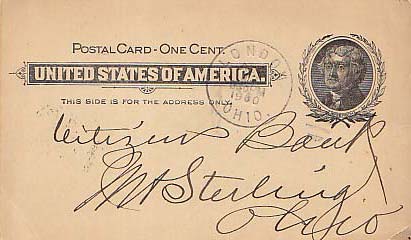 POSTAL CARD - ONE CENT.
LONDON
1900
OHIO.
UNITED STATES OF AMERICA.
THIS SIDE IS FOR THE ADDRESS ONLY.
Citizens Bank
Mt Sterling
Ohio